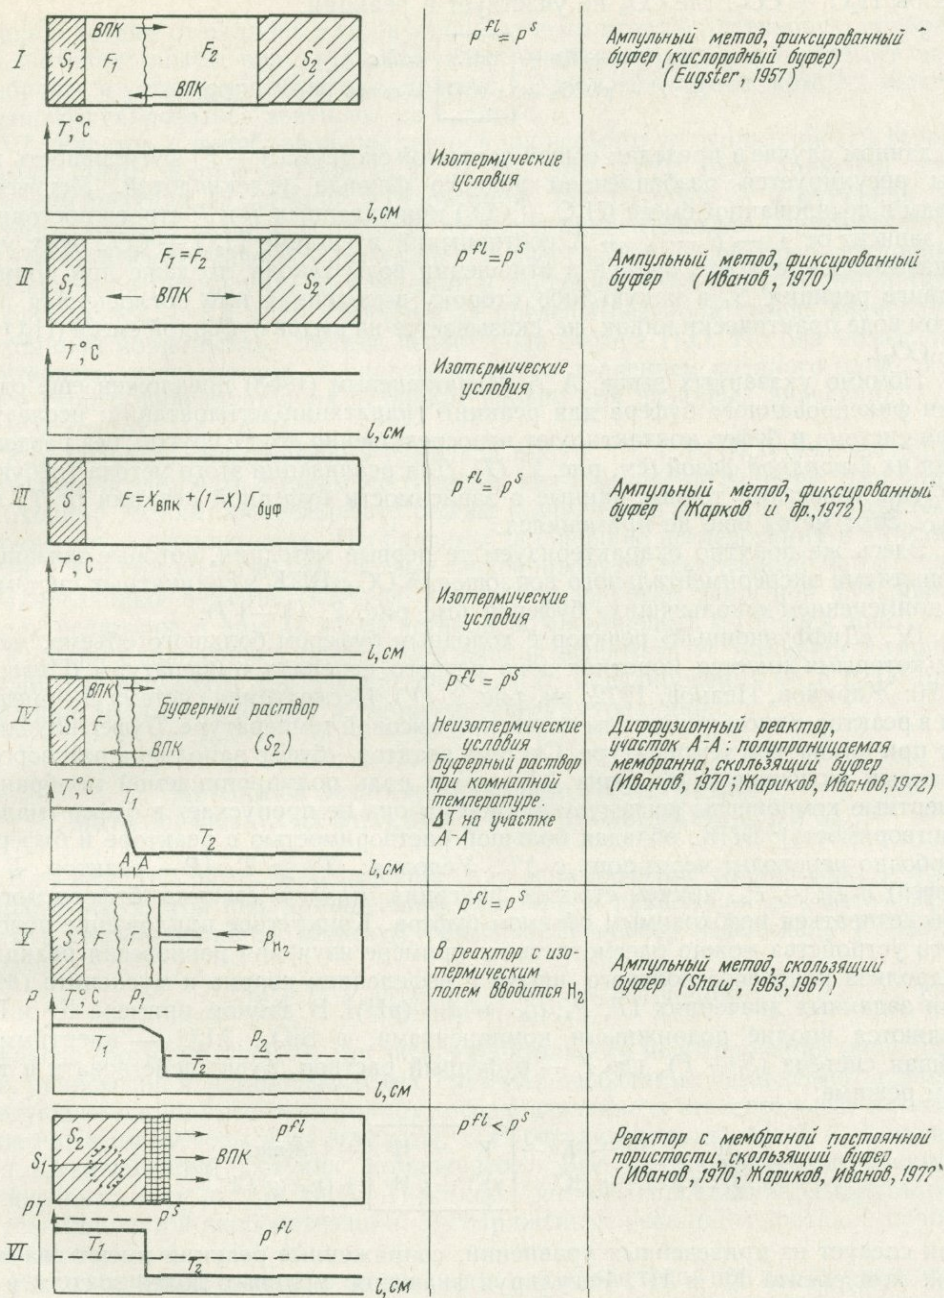 I
ВПК
S₁
F₁
F₂
S₂
ВПК
p^fl = p^s
Ампульный метод, фиксированный
буфер (кислородный буфер)
(Eugster, 1957)
T,°C
Изотермические
условия
l, см
II
F₁ = F₂
S₁
ВПК
S₂
p^fl = p^s
Ампульный метод, фиксированный
буфер (Иванов, 1970)
T,°C
Изотермические
условия
l, см
III
S
F = X_ВПК + (1-X) Г_буф
p^fl = p^s
Ампульный метод, фиксированный
буфер (Жарков и др., 1972)
T,°C
Изотермические
условия
l, см
IV
ВПК
S
F
Буферный раствор
(S₂)
ВПК
p^fl = p^s
Неизотермические
условия
Буферный раствор
при комнатной
температуре.
ΔT на участке
A-A
Диффузионный реактор,
участок A-A: полупроницаемая
мембранна, скользящий буфер
(Иванов, 1970; Жариков, Иванов, 1972)
T,°C
T₁
T₂
A
A
l, см
V
S
F
Г
P_H₂
p^fl = p^s
В реактор с изо-
термическим
полем вводится H₂
Ампульный метод, скользящий
буфер (Shaw, 1963, 1967)
P
T,°C
P₁
T₁
P₂
T₂
l, см
S₂
S₁
p^fl
ВПК
p^fl < p^s
Реактор с мембраной постоянной
пористости, скользящий буфер
(Иванов, 1970; Жариков, Иванов,
PT
p^s
VI
T₁
p^fl
T₂
l, см